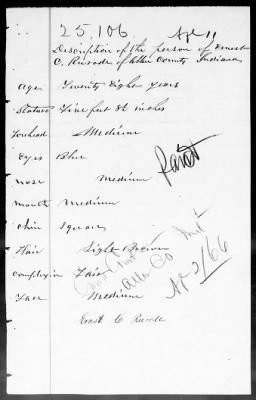 25,106. Ap 11
Description of the person of Ernest
C. of Allen County Indiana
age Twenty Eight years
Stature Five feet 8½ inches
Forehead Medium
Eyes Blue
nose Medium
mouth Medium
chin Square
Hair Light Brown
Complexion Fair
Face Medium
Allen Co
Ap 2/66
Ernst C